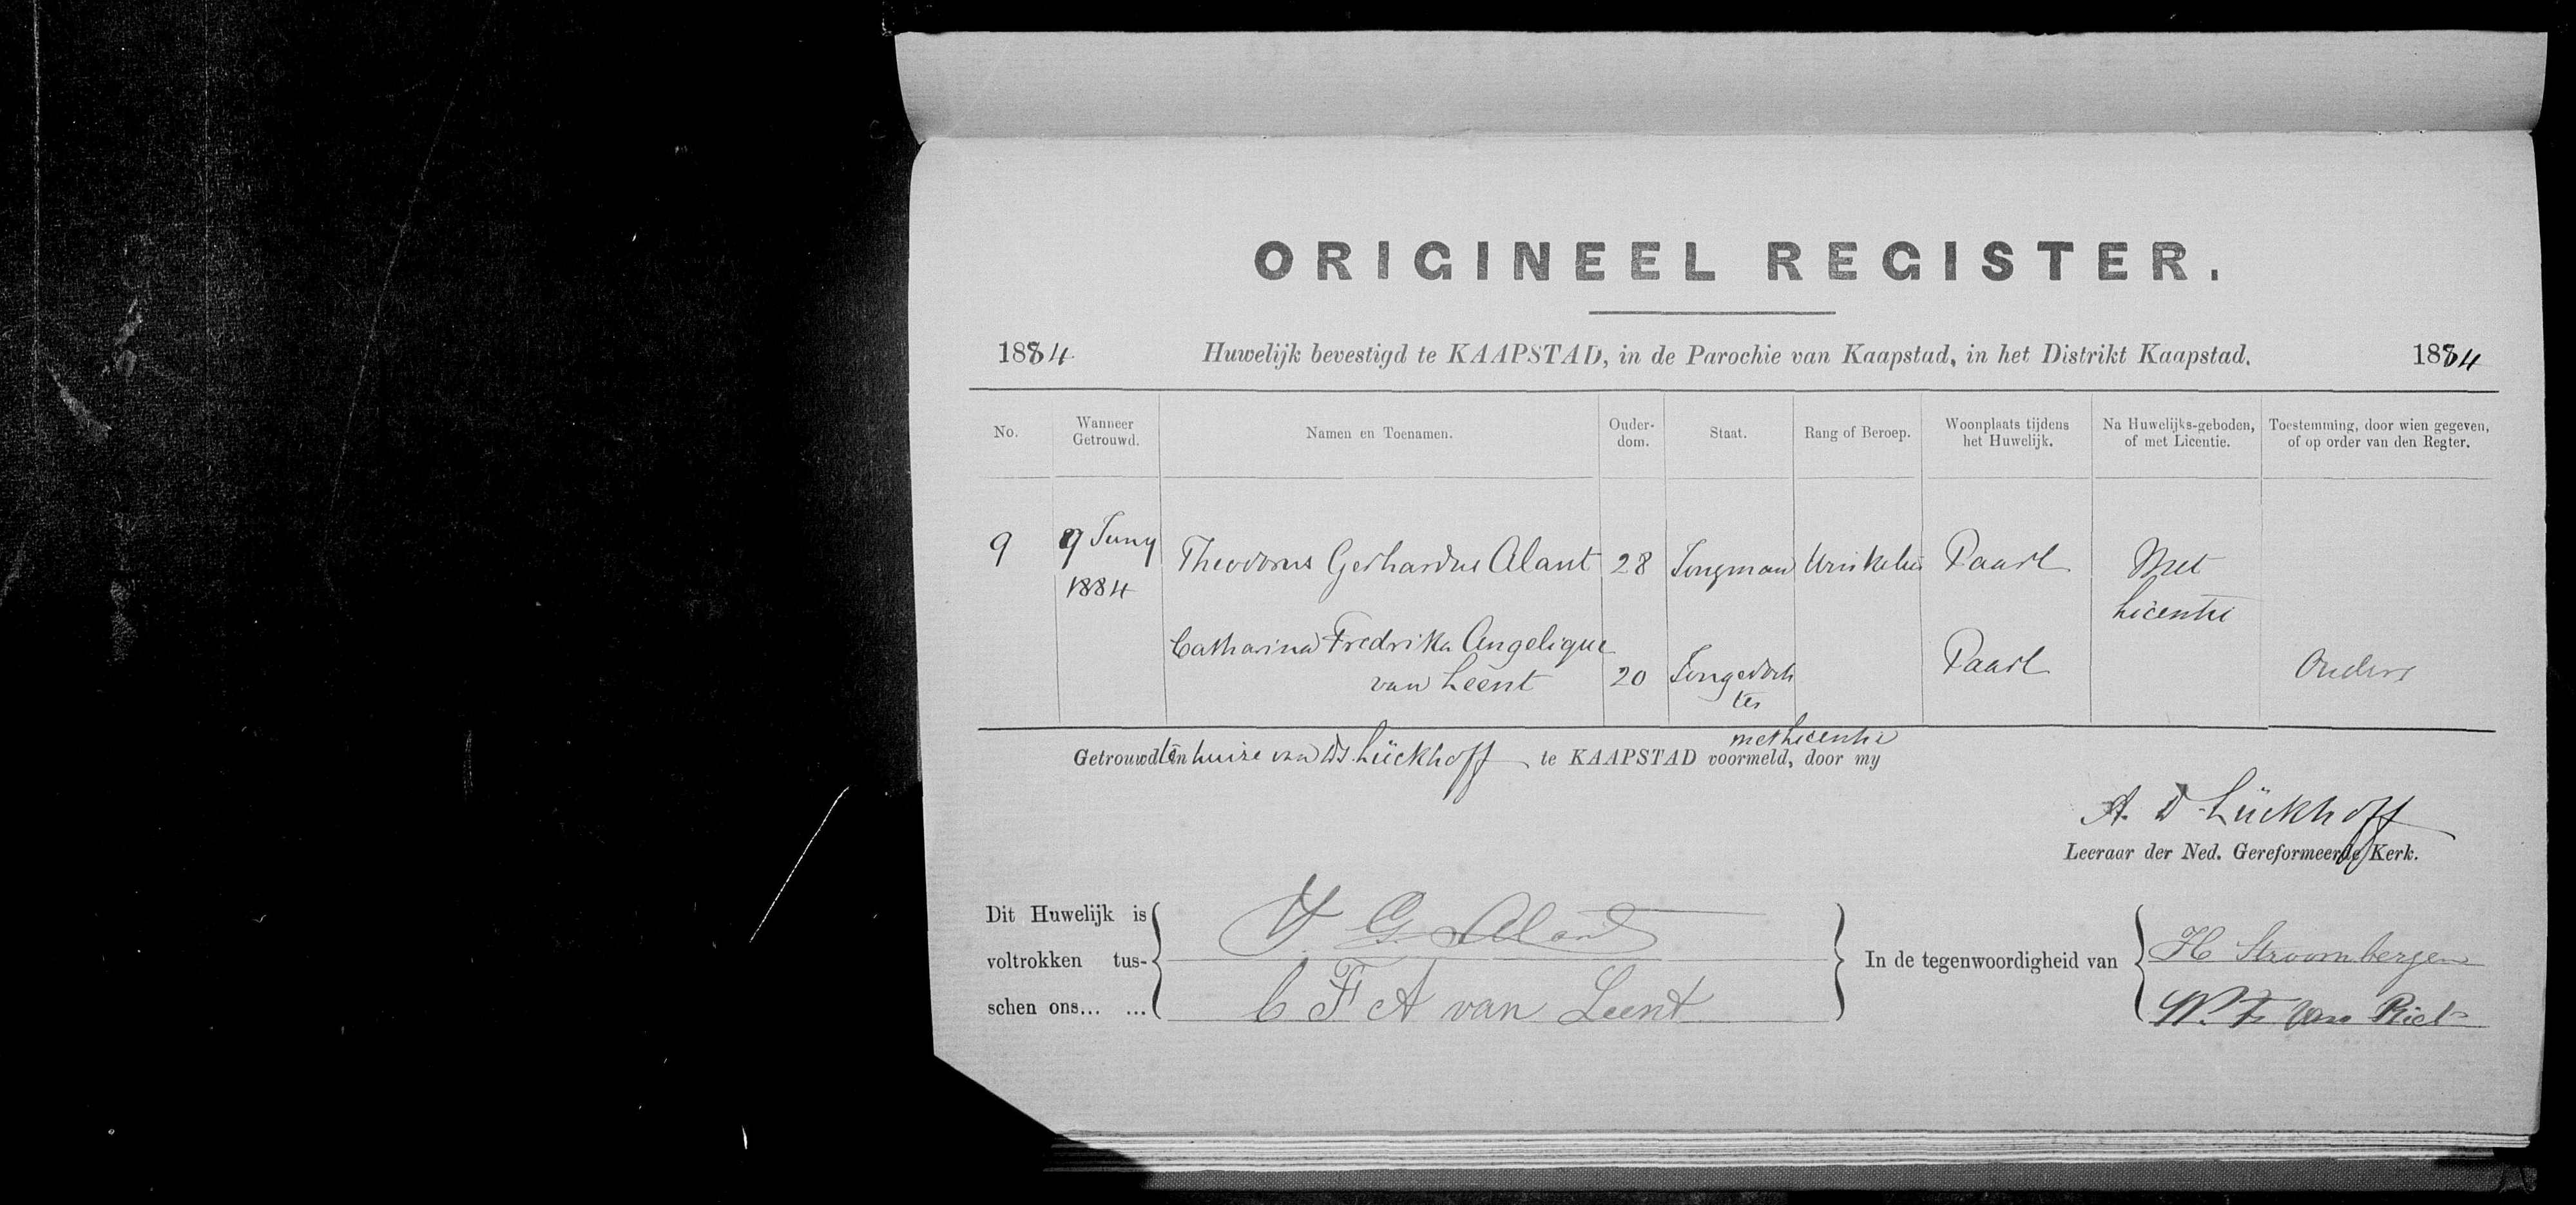 ORIGINEEL REGISTER.
1884 Huwelijk bevestigd te KAAPSTAD, in de Parochie van Kaapstad, in het Distrikt Kaapstad. 1884
No. Wanneer Getrouwd. Namen en Toenamen. Ouder-dom. Staat. Rang of Beroep. Woonplaats tijdens het Huwelijk. Na Huwelijks-geboden, of met Licentie. Toestemming, door wien gegeven, of op order van den Regter.
9 9 Juny 1884 Theodorus Gerhardus Alant 28 Jongman Winkelier Paarl Met Licentie
Catharina Fredrika Angelique van Leent 20 Jongedochter Paarl Ouders
met Licentie
Getrouwd ten huize van Ds. Lückhoff te KAAPSTAD voormeld, door my
A. D. Lückhoff
Leeraar der Ned. Gereformeerde Kerk.
Dit Huwelijk is voltrokken tusschen ons... ...
T G Alant
C F A van Leent
In de tegenwoordigheid van
H Stroombergen
W. F. van Riet